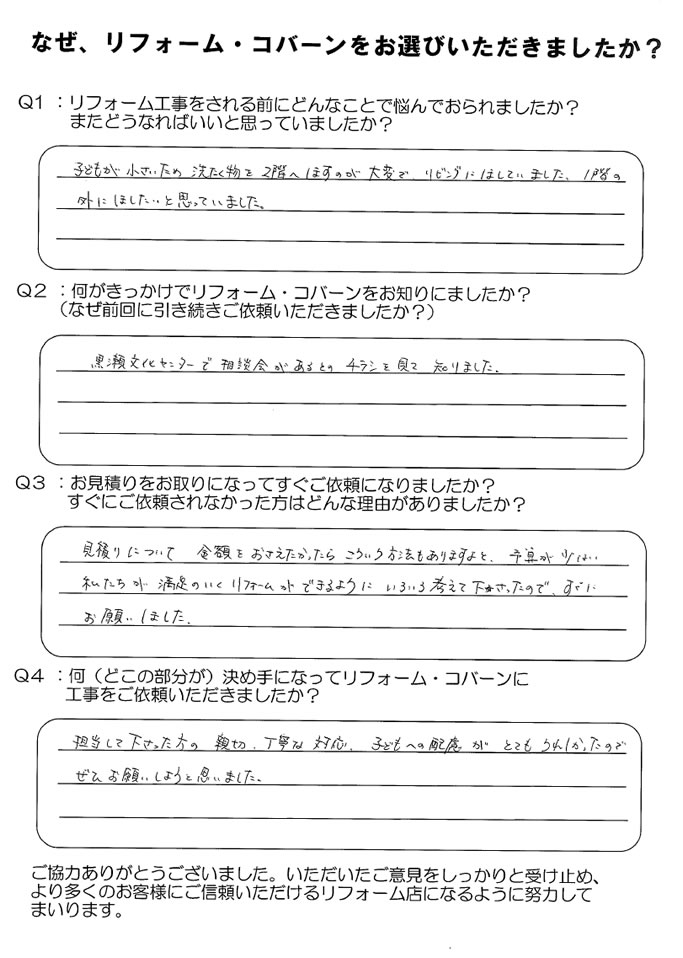 なぜ、リフォーム・コバーンをお選びいただきましたか？
Q1 ：リフォーム工事をされる前にどんなことで悩んでおられましたか？
またどうなればいいと思っていましたか？
子どもが小さいため 洗たく物を 2階へほすのが 大変で リビングにほしていました。1階の
外にほしたいと思っていました。
Q2 ：何がきっかけでリフォーム・コバーンをお知りにましたか？
（なぜ前回に引き続きご依頼いただきましたか？）
黒瀬文化センターで 相談会があるとの チラシを見て 知りました。
Q3 ：お見積りをお取りになってすぐご依頼になりましたか？
すぐにご依頼されなかった方はどんな理由がありましたか？
見積りについて 金額をおさえたかったら こういう方法もありますよと、予算が少ない
私たちが 満足のいくリフォームができるように いろいろ考えて下さったので、すぐに
お願いしました。
Q4 ：何（どこの部分が）決め手になってリフォーム・コバーンに
工事をご依頼いただきましたか？
担当して下さった方の 親切、丁寧な 対応、子どもへの配慮が とてもうれしかったので
ぜひお願いしようと思いました。
ご協力ありがとうございました。いただいたご意見をしっかりと受け止め、
より多くのお客様にご信頼いただけるリフォーム店になるように努力して
まいります。